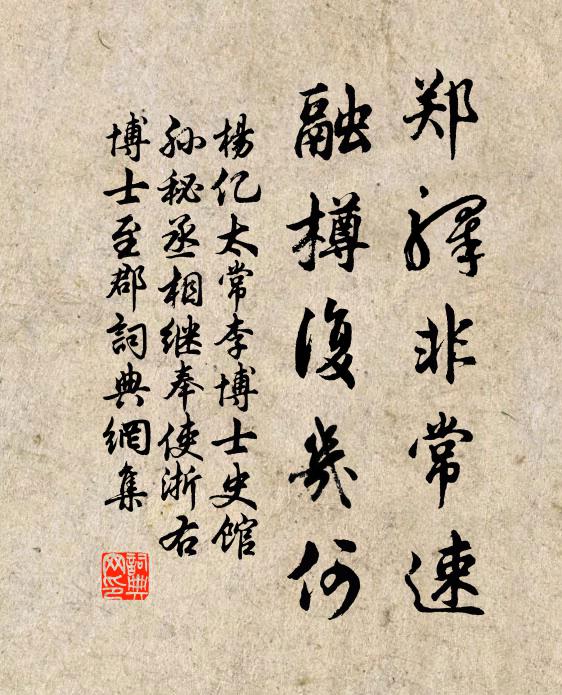 郑驿非常速
融樽复几何
杨亿太常李博士史馆
孙秘丞相继奉使浙右
博士至郡詞典網集
詞典网印